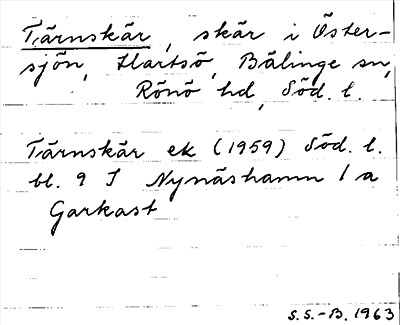 Tärnskär, skär i Öster-
sjön, Hartsö, Bälinge sn,
Rönö hd, Söd. l.
Tärnskär ek (1959) Söd. l.
bl. 9 I Nynäshamn 1 a
Garkast
S.S.-B. 1963